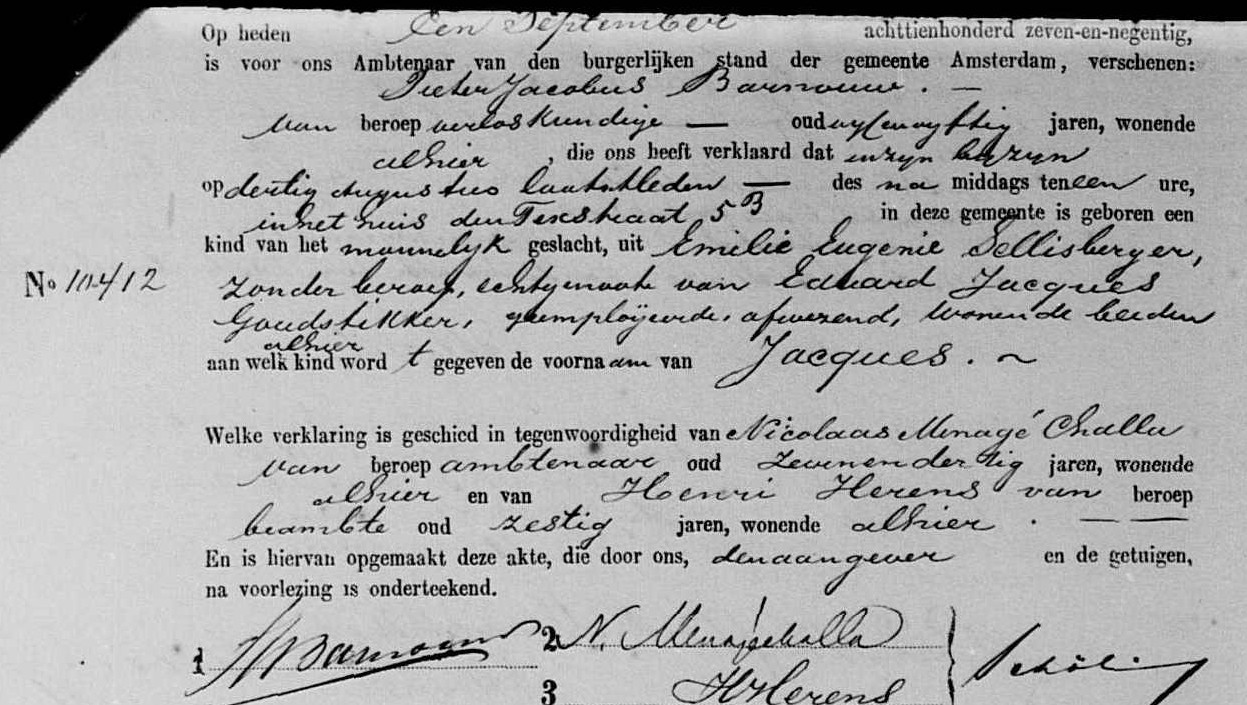 Op heden Een September achttienhonderd zeven-en-negentig,
is voor ons Ambtenaar van den burgerlijken stand der gemeente Amsterdam, verschenen:
Pieter Jacobus Barnouw. —
van beroep verloskundige — oud vyfenvyftig jaren, wonende
alhier , die ons heeft verklaard dat in zyn byzyn
op dertig Augustus laatstleden — des na middags ten een ure,
in het huis den Texstraat 5 B in deze gemeente is geboren een
kind van het mannelyk geslacht, uit Emilie Eugenie Sellisberger,
No 10412 zonder beroep, echtgenoote van Eduard Jacques
Goudstikker, geemployeerde, afwezend, wonende beiden
alhier
aan welk kind word t gegeven de voornaam van Jacques. ~
Welke verklaring is geschied in tegenwoordigheid van Nicolaas Menagé Challa
van beroep ambtenaar oud zevenendertig jaren, wonende
alhier en van Henri Herens van beroep
beambte oud zestig jaren, wonende alhier . — —
En is hiervan opgemaakt deze akte, die door ons, den aangever en de getuigen,
na voorlezing is onderteekend.
1 Barnouw 2 N. Menagé Challa
3 HHerens